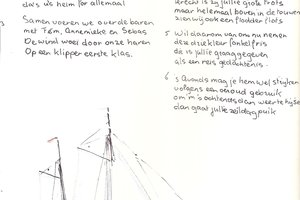 dat is heim for allemaal
Samen voeren we over de baren
met Fem, Annenieke en Sebas
De wind woei door onze haren
Op een klipper eerste klas.
trecht is zij jullie grote trots
maar helemaal boven in de touwen
zien wij ook een fladder flots
5 Wil daarom van ons nu nemen
deze driekleur fonkelfris
die is jullie graag gegeven
als een reis gedachtenis.
6 's Avonds mag je hem wel strijken
volgens een oud gebruik
om 'm 's ochtends dan weer te hijsen
dan gaat jullie zeildag puik